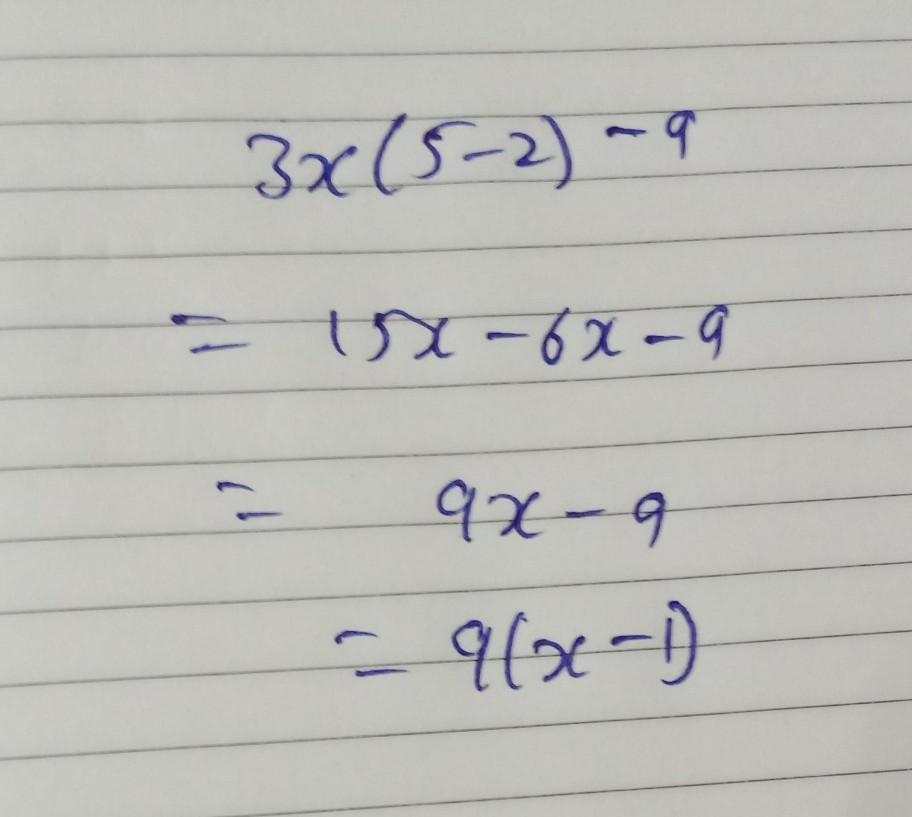 3x(5-2) - 9
= 15x - 6x - 9
= 9x - 9
= 9(x-1)